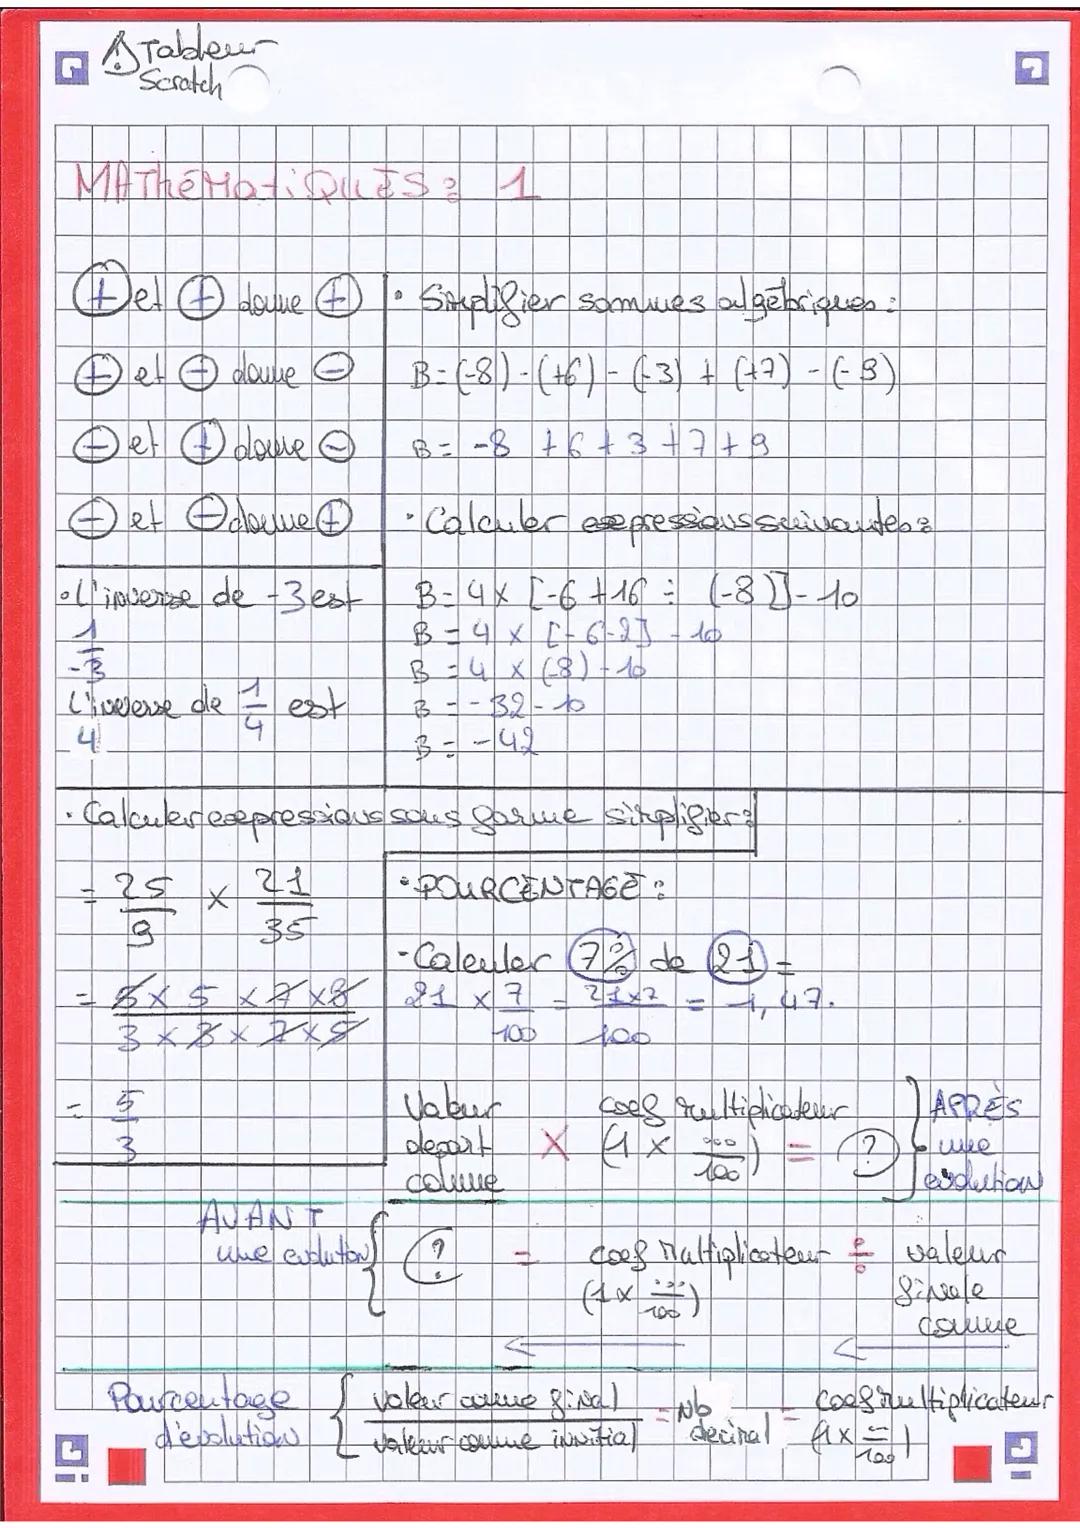 ⚠ Tableur
Scratch
MAThéMatiQUES: 1
⊕ et ⊕ donne ⊕
⊕ et ⊖ donne ⊖
⊖ et ⊕ donne ⊖
⊖ et ⊖ donne ⊕
• L'inverse de -3 est
1/-3
L'inverse de 1/4 est
4
• Simplifier sommes algébriques :
B = (-8) - (+6) - (-3) + (+7) - (-9)
B = -8 +6 +3 +7 +9
• Calculer expressions suivantes :
B = 4 × [-6 +16 ÷ (-8)] - 10
B = 4 × [-6-2] - 10
B = 4 × (-8) - 10
B = -32 - 10
B = -42
• Calculer expressions sous forme simplifier :
= 25/9 × 21/35
= 5 × 5 × 7 × 3 / 3 × 3 × 7 × 5
= 5/3
• POURCENTAGE :
- Calculer 7% de 21 =
21 × 7/100 = 21×7/100 = 1,47.
Valeur depart connue × coef multiplicateur (1 × .../100) = ? } APRÈS une evolution
AVANT une evolution { ? = coef Multiplicateur (1 × .../100) ÷ valeur finale connue
Pourcentage d'evolution { valeur connue final / valeur connue innitial = Nb decimal = coef multiplicateur (1 × .../100)